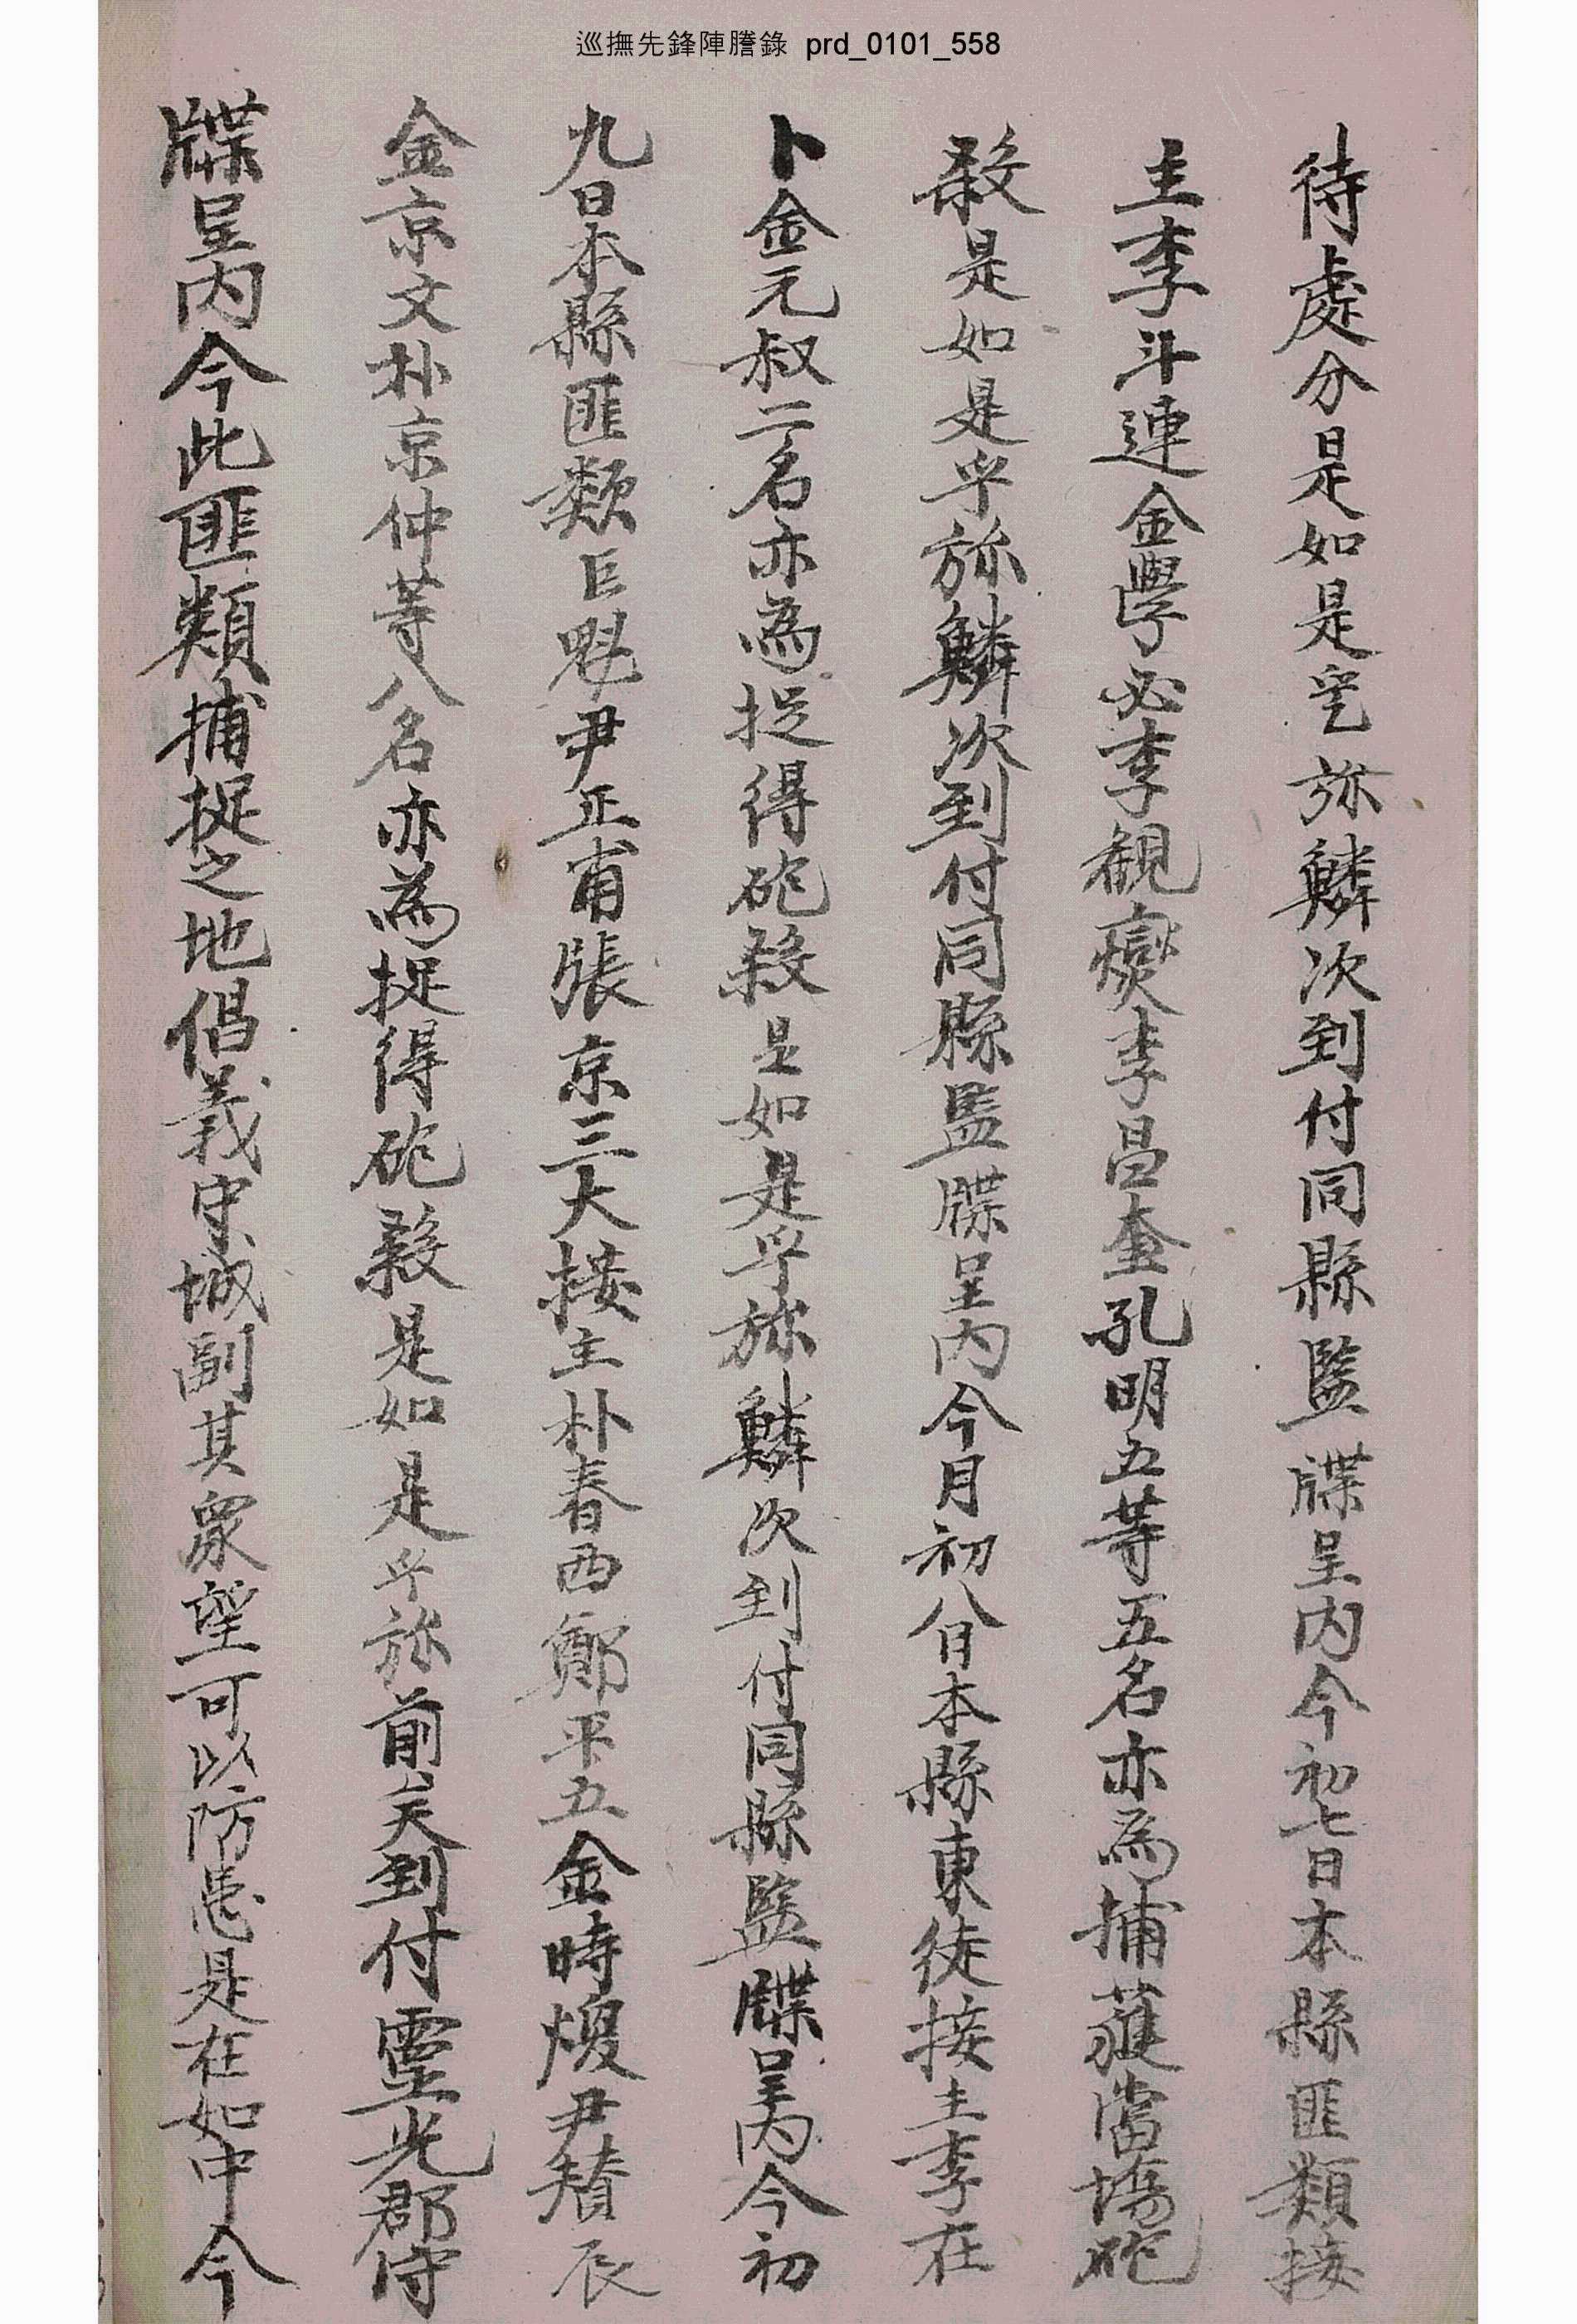 巡撫先鋒陣謄錄 prd_0101_558
待處分是如是乎旀鱗次到付同縣監牒呈內今初七日本縣匪類接
主李斗連金學必李觀燮李昌奎孔明五等五名亦爲捕蒦當塲砲
殺是如是乎旀鱗次到付同縣監牒呈內今月初八日本縣東徒接主李在
卜金元叔二名亦爲捉得砲殺是如是乎旀鱗次到付同縣監牒呈內今初
九日本縣匪類巨魁尹正甫張京三大接主朴春西鄭平五金時煥尹賛辰
金京文朴京仲等八名亦爲捉得砲殺是如是乎旀前矣到付靈光郡守
牒呈內今此匪類捕捉之地倡義守城副其衆望可以防患是在如中今